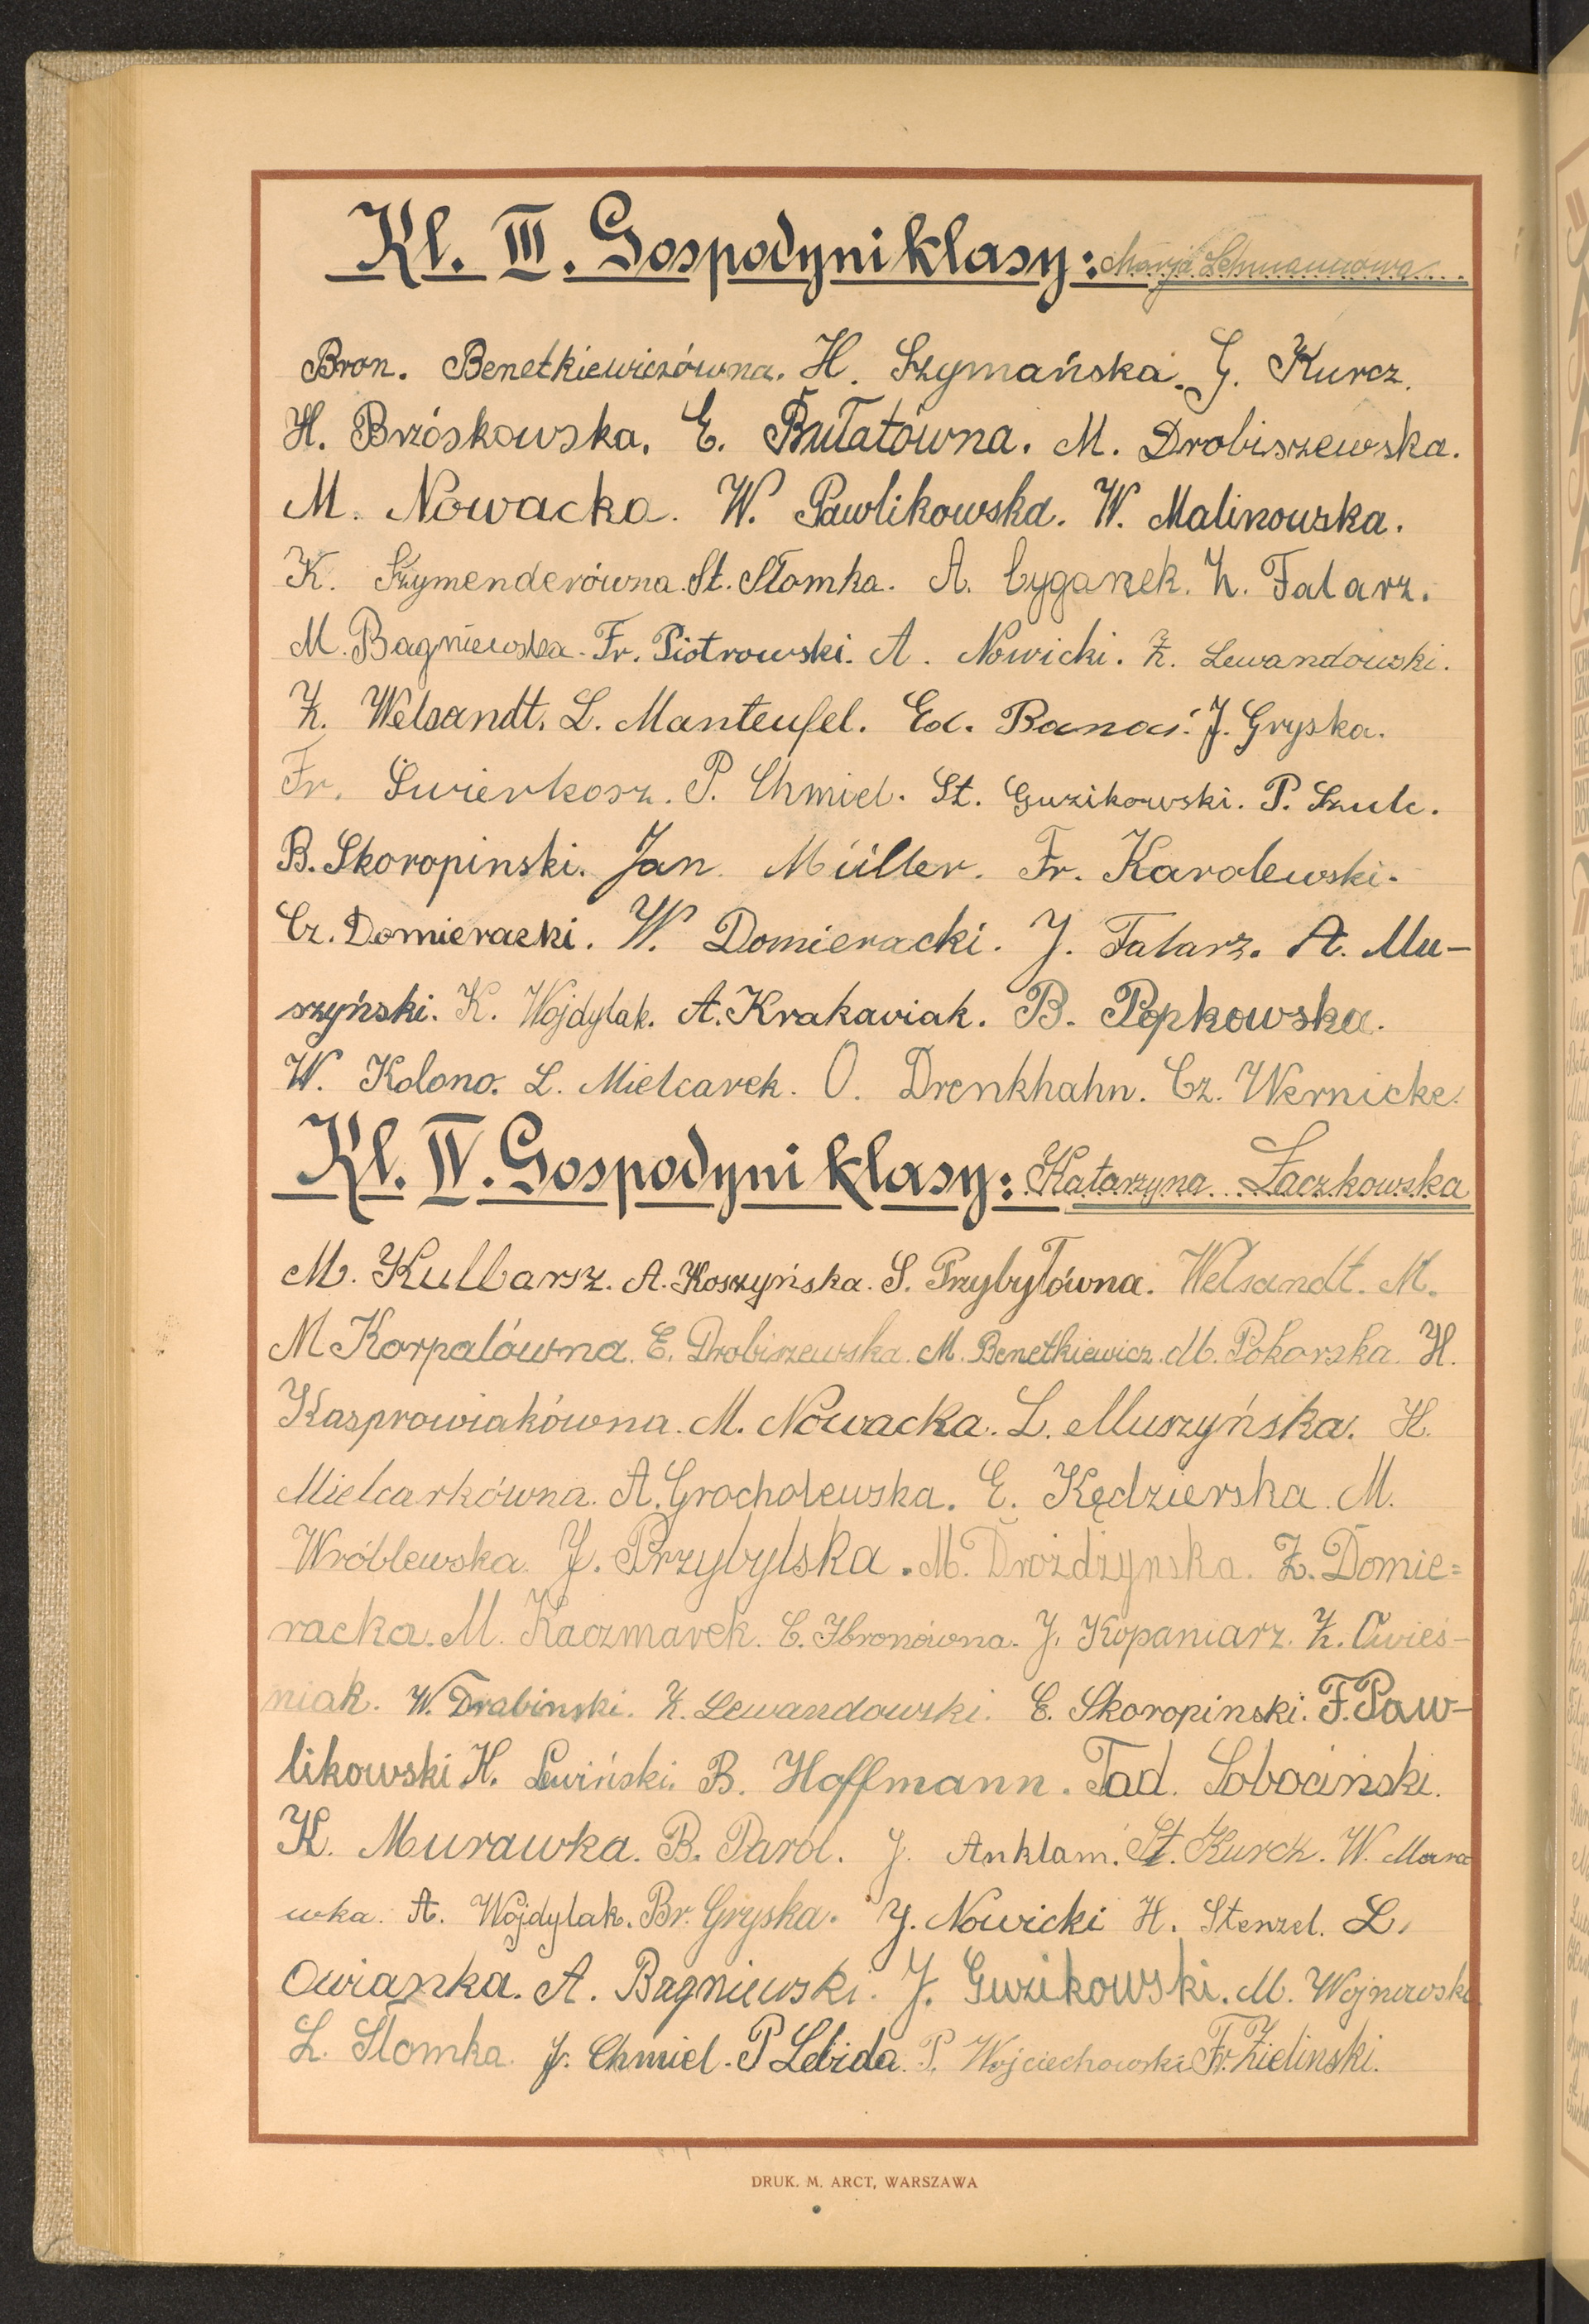 Kl. III. Gospodyni klasy: Marja Lehmannowa
Bron. Benetkiewiczówna. H. Szymańska. G. Kurcz.
H. Brzóskowska. E. Bułatówna. M. Drobiszewska.
M. Nowacka. W. Pawlikowska. W. Malinowska.
K. Szymenderówna. St. Słomka. A. Cyganek. Z. Talarz.
M. Bagniewska. Fr. Piotrowski. A. Nowicki. Z. Lewandowski.
Z. Welsandt. L. Manteufel. Ed. Banaś. J. Gryska.
Fr. Świerkosz. P. Chmiel. St. Guzikowski. P. Szulc.
B. Skoropinski. Jan Müller. Fr. Karolewski.
Cz. Domieracki. W. Domieracki. J. Talarz. A. Mu-
szyński. K. Wojdylak. A. Krakaviak. B. Popkowska.
W. Kolono. L. Mielcarek. O. Drenkhahn. Cz. Wernicke.
Kl. IV. Gospodyni klasy: Katarzyna Łaczkowska
M. Kulbarsz. A. Koszyńska. S. Przybyłówna. Welsandt. M.
M Karpalówna. E. Drobiszewska. M. Benetkiewicz. M. Pokorska. H.
Kasprowiakówna. M. Nowacka. L. Muszyńska. H.
Mielcarkówna. A. Grocholewska. E. Kędzierska. M.
Wróblewska. J. Przybylska. M. Drożdżynska. Z. Domie=
racka. M. Kaczmarek. C. Hbronówna. J. Kopaniarz. Z. Owieś-
niak. W. Drabinski. Z. Lewandowski. E. Skoropinski. F. Paw-
likowski H. Lewiński. B. Hoffmann. Tad. Sobociński.
K. Murawka. B. Parol. J. Anklam. St. Kurcz. W. Mura
wka. A. Wojdylak. Br. Gryska. J. Nowicki H. Stenzel. L.
Owianka. A. Bagniewski. J. Guzikowski. M. Wojnowski
L. Słomka. J. Chmiel. P Lebida. P. Wojciechowski Fr. Zielinski.
DRUK. M. ARCT, WARSZAWA